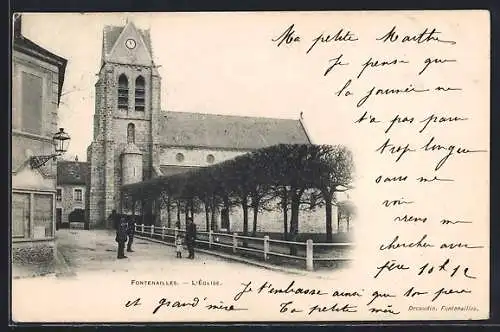 Ma petite Marthe
je pense que
la journée ne
t'a pas paru
trop longue
sans me
voir
chercher avec
père
FONTENAILLES. — L'EGLISE.
Je t'embrasse ainsi que ton père
et grand' mère
Ta petite mère
Decaudin, Fontenailles.